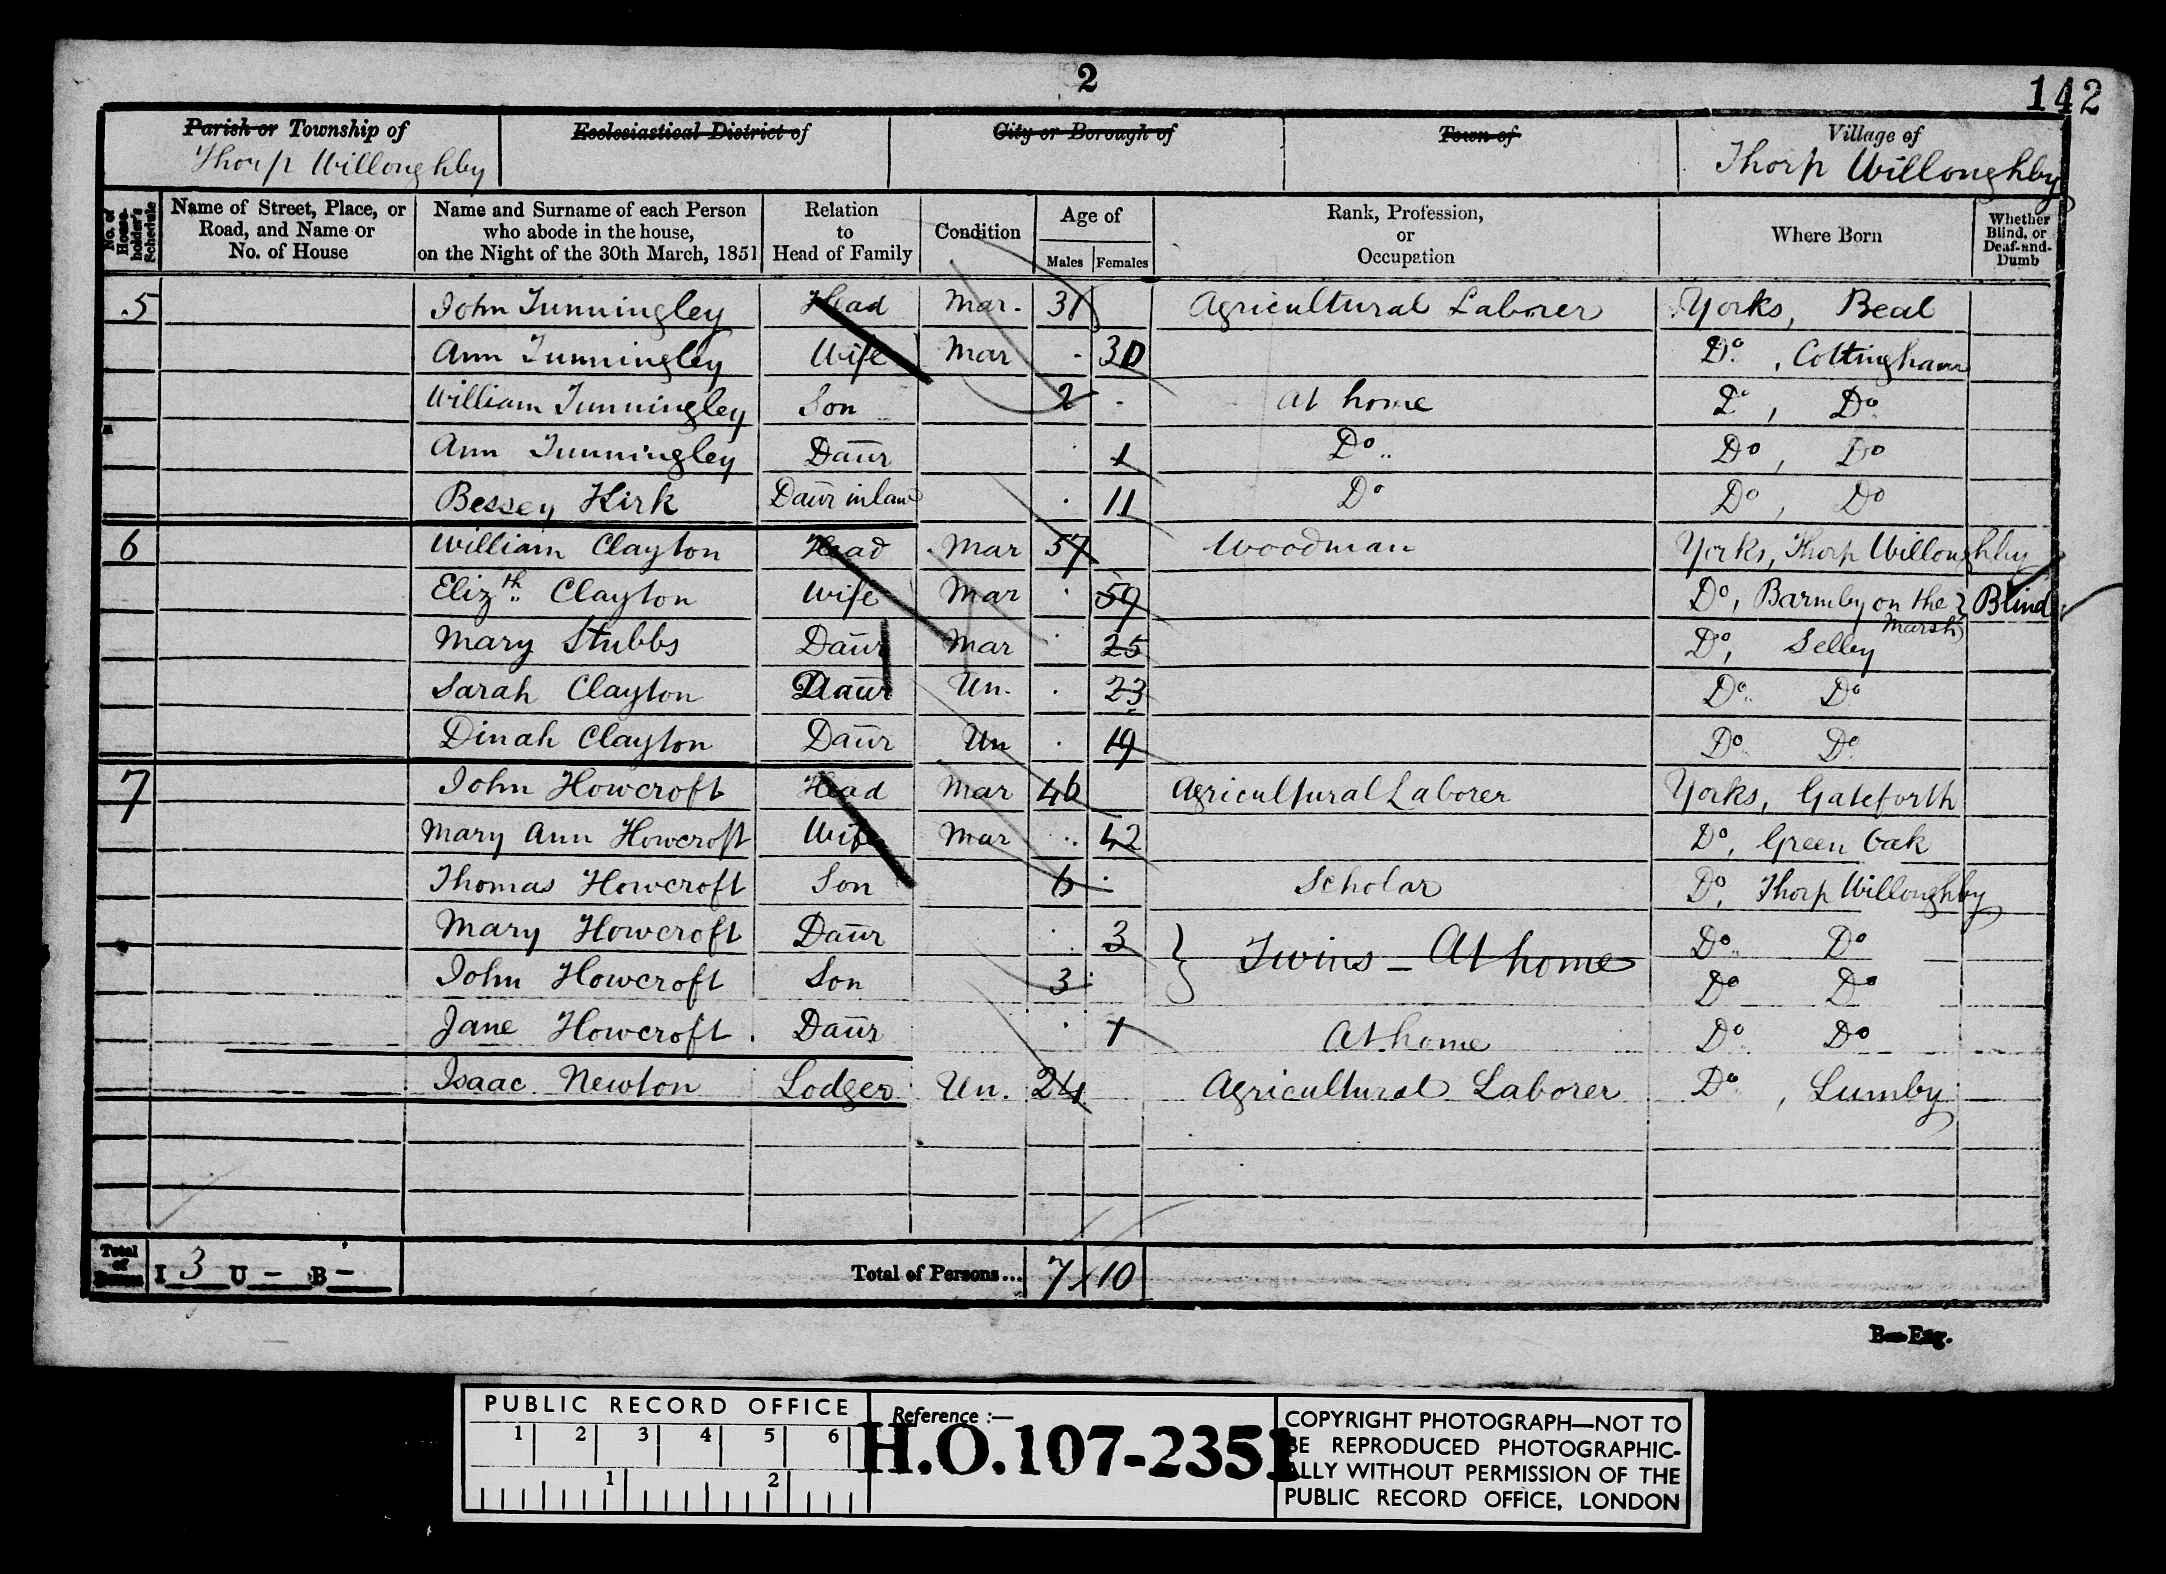 2
142
Parish or Township of Ecclesiastical District of City or Borough of Town of Village of
Thorp Willoughby Thorp Willoughby
No. of House-holder's Schedule
Name of Street, Place, or Road, and Name or No. of House
Name and Surname of each Person who abode in the house, on the Night of the 30th March, 1851
Relation to Head of Family
Condition
Age of
Males Females
Rank, Profession, or Occupation
Where Born
Whether Blind, or Deaf-and-Dumb
5 John Tunningley Head Mar. 31 Agricultural Laborer Yorks, Beal
Ann Tunningley Wife Mar 30 Do. , Cottingham
William Tunningley Son 2 At home Do, Do
Ann Tunningley Daur 1 Do.. Do, Do
Bessey Kirk Daur in law 11 Do Do, Do
6 William Clayton Head Mar 57 Woodman Yorks, Thorp Willoughby
Elizth Clayton Wife Mar 59 Do, Barmby on the Marsh Blind
Mary Stubbs Daur Mar 25 Do, Selley
Sarah Clayton Daur Un. 23 Do Do
Dinah Clayton Daur Un 19 Do Do
7 John Howcroft Head Mar 46 Agricultural Laborer Yorks, Gateforth
Mary Ann Howcroft Wife Mar 42 Do, Green Oak
Thomas Howcroft Son 6 Scholar Do, Thorp Willoughby
Mary Howcroft Daur 3 } Twins - At home Do Do
John Howcroft Son 3 Do Do
Jane Howcroft. Daur 1 At home Do Do
Isaac Newton Lodger Un. 24 Agricultural Laborer Do , Lumby
Total of Houses I 3 U - B - Total of Persons... 7 10
PUBLIC RECORD OFFICE
1 2 3 4 5 6
1 2
Reference :-
H.O.107-2351
COPYRIGHT PHOTOGRAPH—NOT TO
BE REPRODUCED PHOTOGRAPHIC-
ALLY WITHOUT PERMISSION OF THE
PUBLIC RECORD OFFICE, LONDON